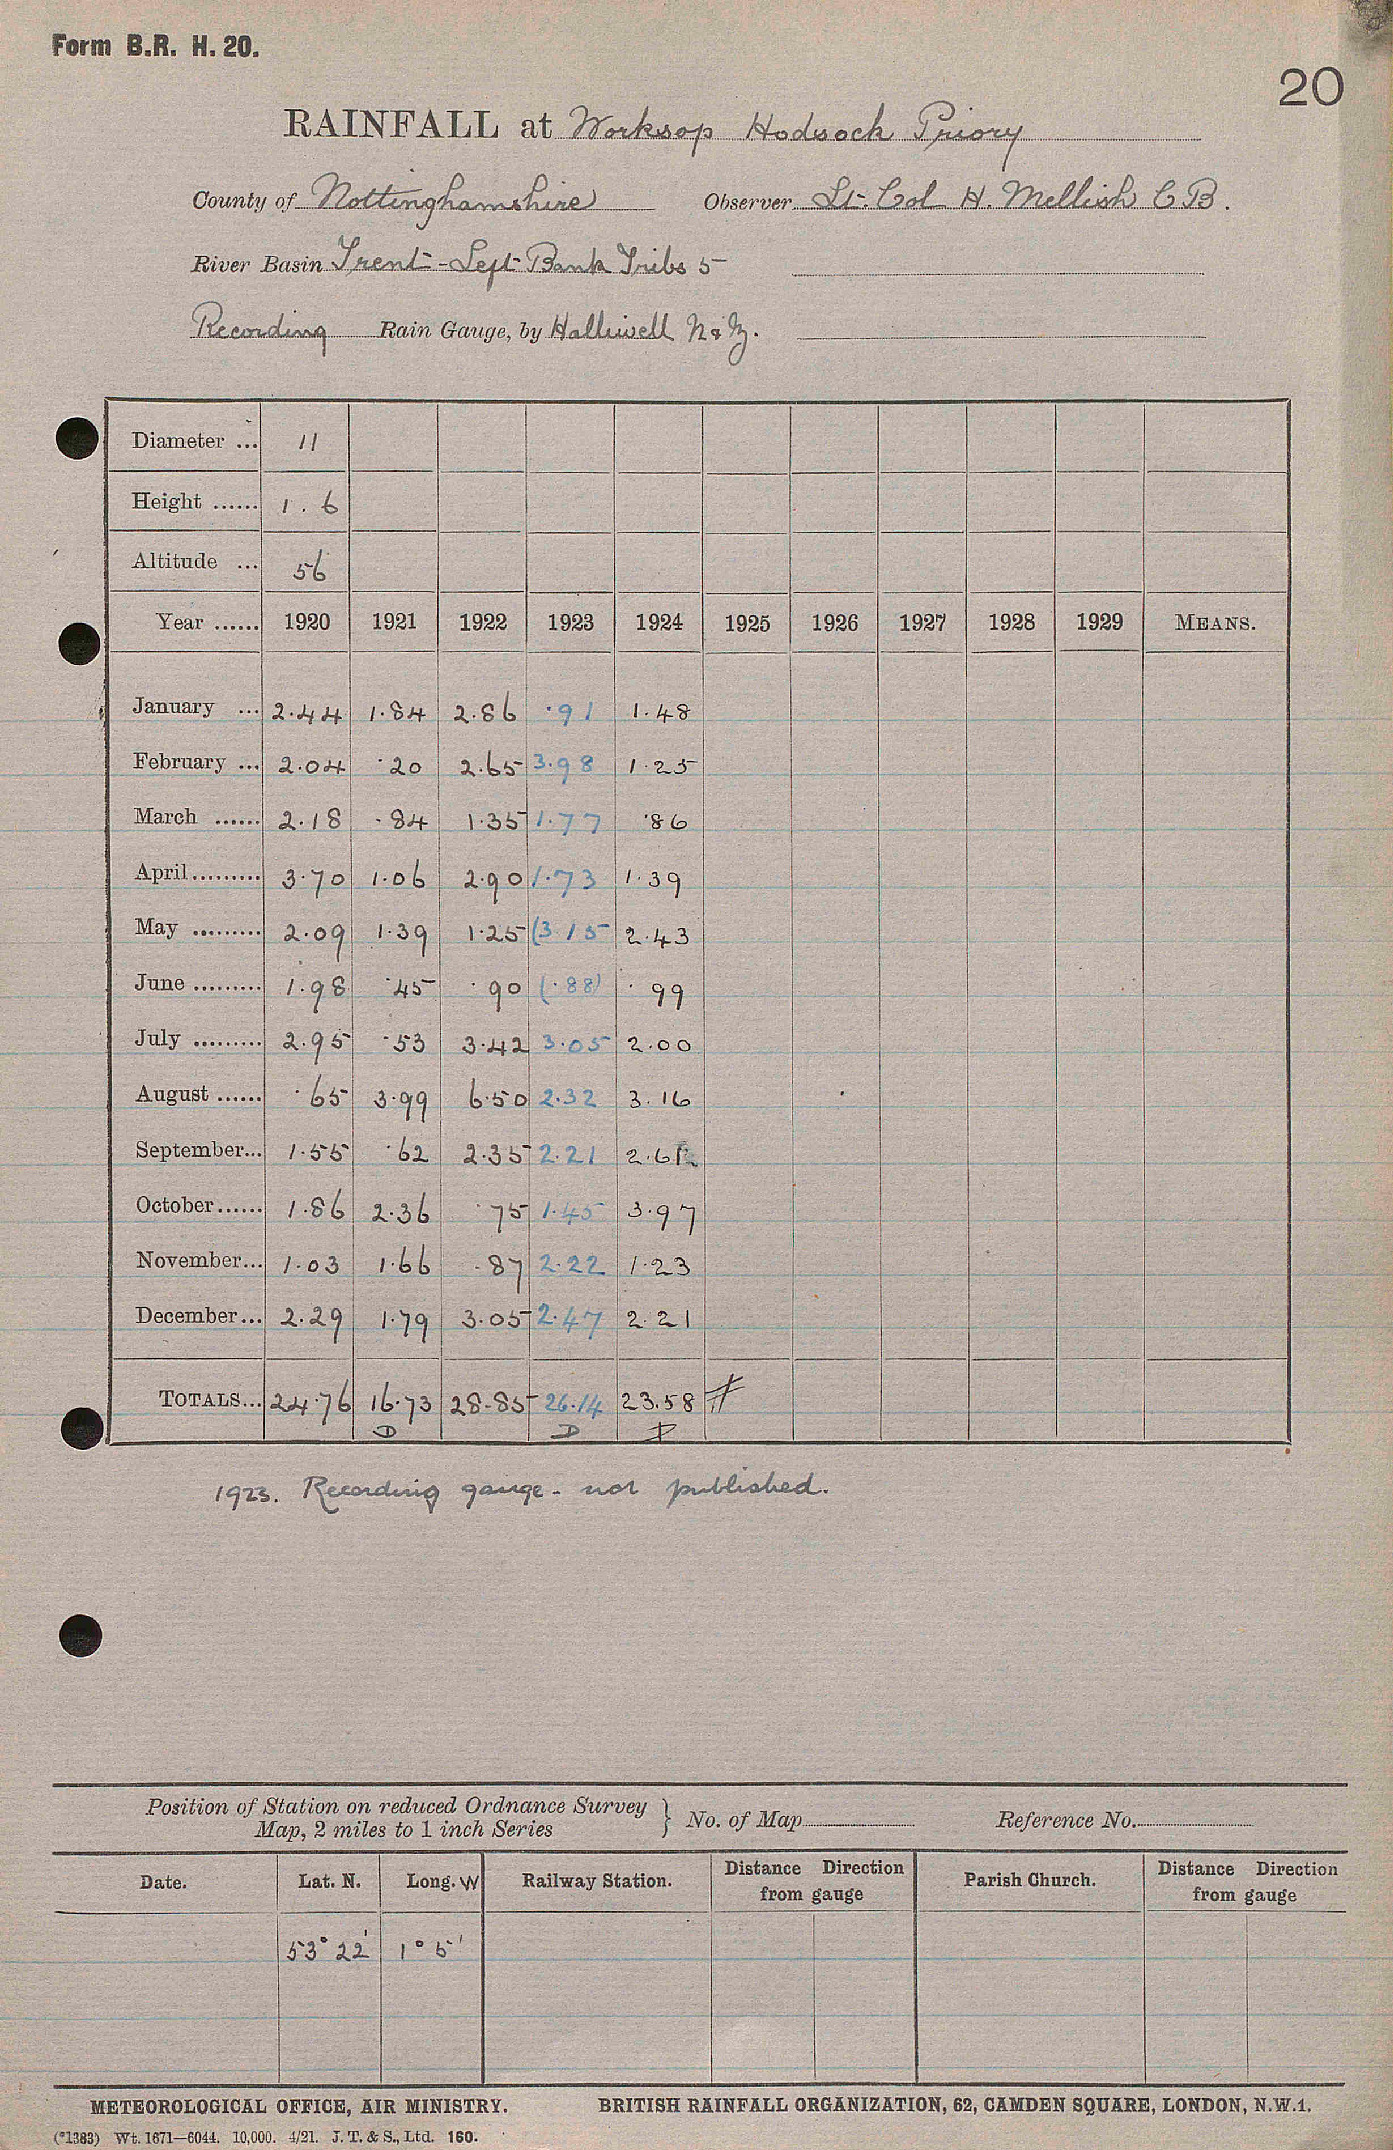 Form B.R. H. 20.
20
RAINFALL at Worksop Hodsock Priory
County of Nottinghamshire Observer Lt. Col H. Mellish C B.
River Basin Trent - Left Bank Tribs 5
Recording Rain Gauge, by Halliwell N & Z.
Diameter ... 11
Height ...... 1 . 6
Altitude ... 56
Year ...... 1920 1921 1922 1923 1924 1925 1926 1927 1928 1929 MEANS.
January ... 2.44 1.84 2.86 .91 1.48
February ... 2.04 .20 2.65 3.98 1.25
March ...... 2.18 .84 1.35 1.77 .86
April ......... 3.70 1.06 2.90 1.73 1.39
May ......... 2.09 1.39 1.25 (3.15 2.43
June ......... 1.98 .45 .90 (.88) .99
July ......... 2.95 .53 3.42 3.05 2.00
August ...... .65 3.99 6.50 2.32 3.16
September... 1.55 .62 2.35 2.21 2.61
October...... 1.86 2.36 .75 1.45 3.97
November... 1.03 1.66 .87 2.22 1.23
December... 2.29 1.79 3.05 2.47 2.21
TOTALS... 24.76 16.73 28.85 26.14 23.58 #
D D
1923. Recording gauge - not published.
Position of Station on reduced Ordnance Survey
Map, 2 miles to 1 inch Series } No. of Map Reference No.
Date. Lat. N. Long. W Railway Station. Distance Direction from gauge Parish Church. Distance Direction from gauge
53° 22' 1° 5'
METEOROLOGICAL OFFICE, AIR MINISTRY. BRITISH RAINFALL ORGANIZATION, 62, CAMDEN SQUARE, LONDON, N.W.1.
(*1383) Wt. 1671—6044. 10,000. 4/21. J. T. & S., Ltd. 160.